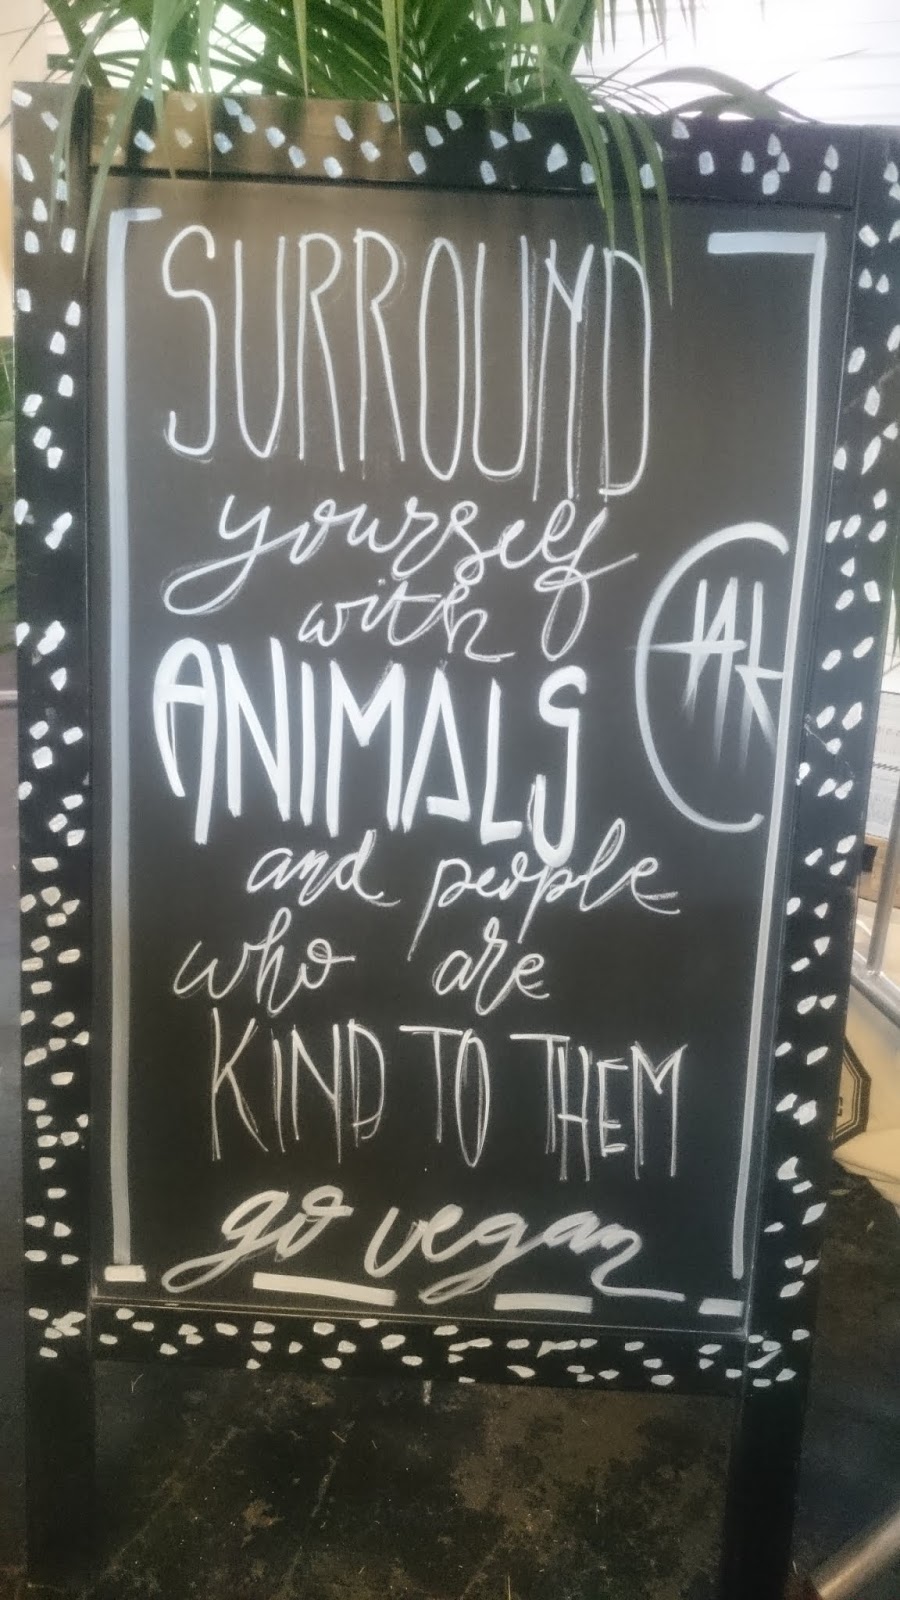 SURROUND
yourself
with
ANIMALS
and people
who are
KIND TO THEM
go vegan